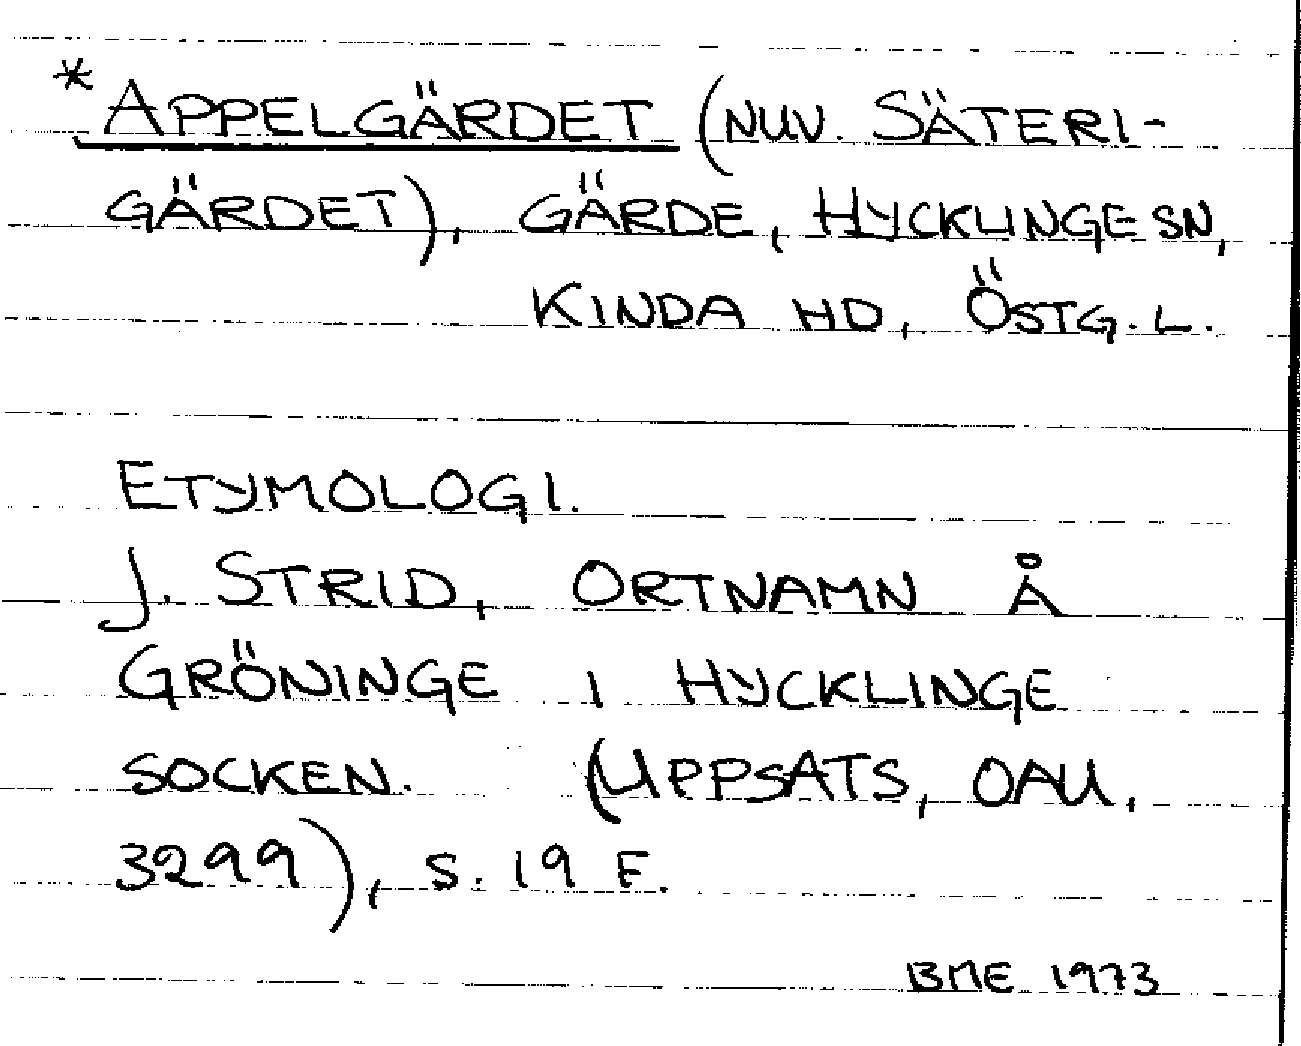 * APPELGÄRDET (NUV. SÄTERI-
GÄRDET), GÄRDE, HYCKLINGE SN,
KINDA HD, ÖSTG. L.
ETYMOLOGI.
J. STRID, ORTNAMN Å
GRÖNINGE I HYCKLINGE
SOCKEN. (UPPSATS, OAU,
3299), S. 19 F.
BME 1973